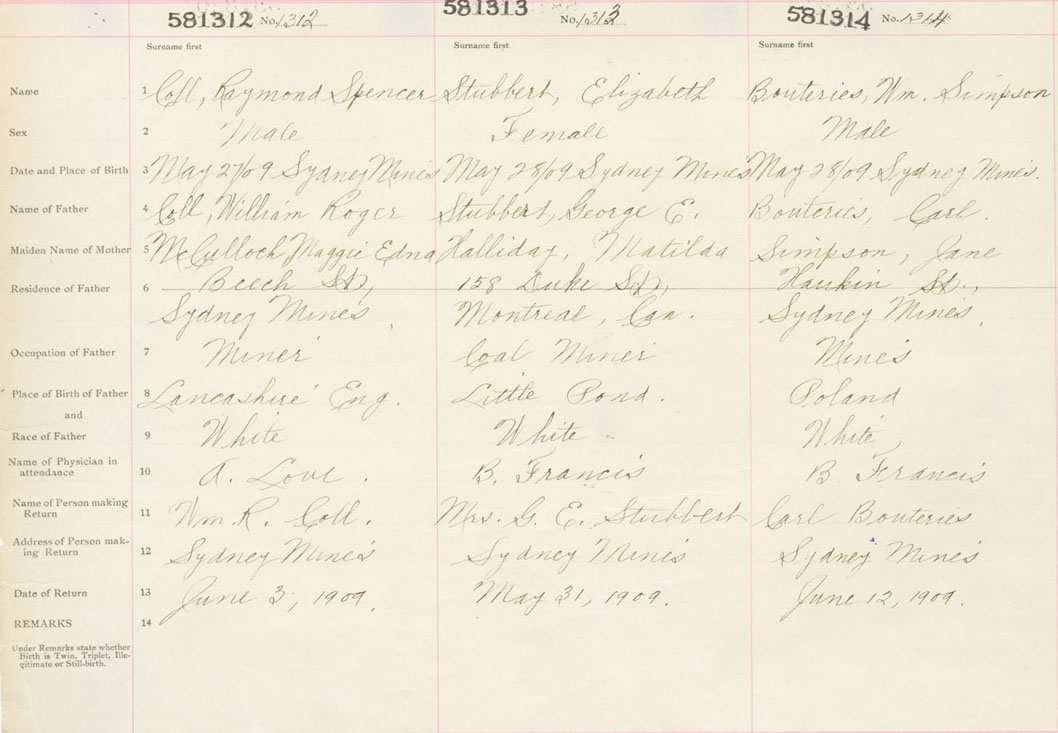 581312 No. 1312 581313 No. 1313 581314 No. 1314
Surname first Surname first Surname first
Name 1 Coll, Raymond Spencer Stubbert, Elizabeth Bouteries, Wm. Simpson
Sex 2 Male Female Male
Date and Place of Birth 3 May 27/09 Sydney Mines May 28/09 Sydney Mines May 28/09 Sydney Mines.
Name of Father 4 Coll, William Roger Stubbert, George E. Bouteries, Carl.
Maiden Name of Mother 5 McCulloch, Maggie Edna Halliday, Matilda Simpson, Jane
Residence of Father 6 Beech St., 158 Duke St., St.,
Sydney Mines, Montreal, Can. Sydney Mines,
Occupation of Father 7 Miner Coal Miner Mines
Place of Birth of Father 8 Lancashire Eng. Little Pond. Poland
and
Race of Father 9 White White White,
Name of Physician in
attendance 10 A. Love. B. Francis B. Francis
Name of Person making
Return 11 Wm. R. Coll. Mrs. G. E. Stubbert Carl Bouteries
Address of Person mak-
ing Return 12 Sydney Mines Sydney Mines Sydney Mines
Date of Return 13 June 3, 1909. May 31, 1909. June 12, 1909.
REMARKS 14
Under Remarks state whether
Birth is Twin, Triplet, Ille-
gitimate or Still-birth.